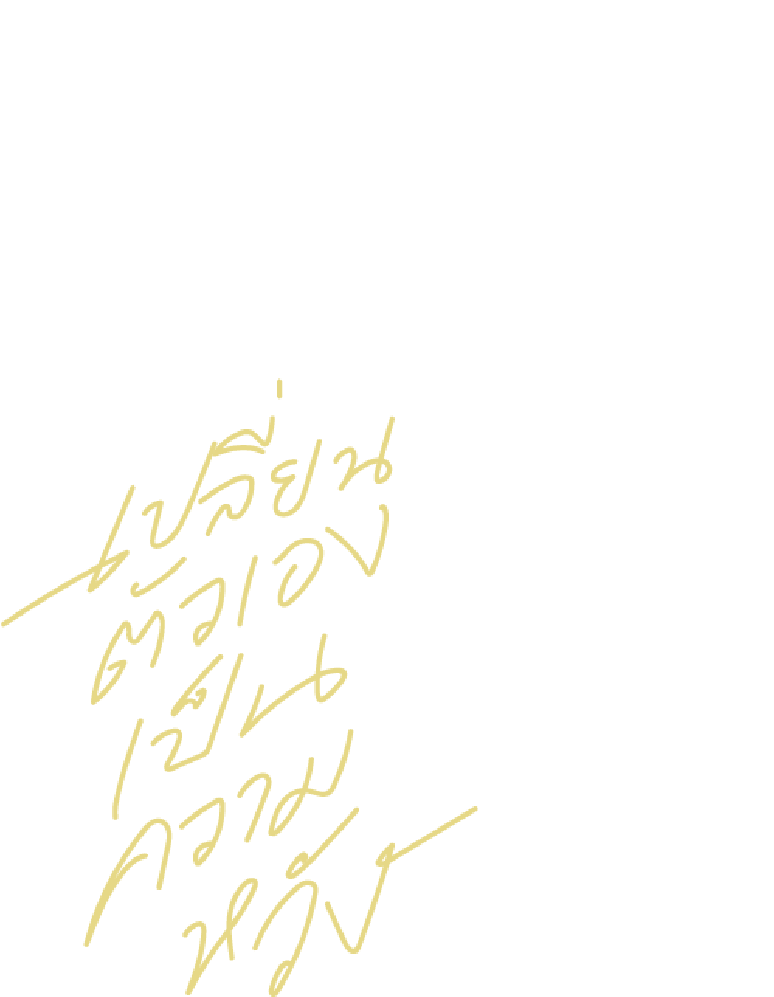 เปลี่ยน
ตัวเอง
เป็น
ความ
หวัง